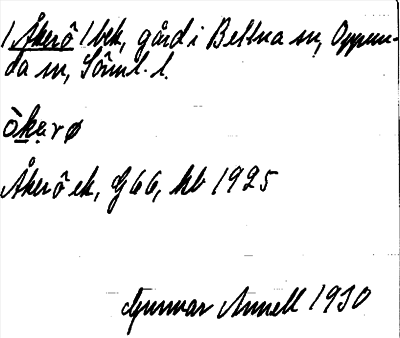 1 Åkerö 1 bek, gård i Bettna sn, Oppun-
da sn, Söml. l.
òkarø
Åkerö ek, G66, kb 1925
Gunnar Annell 1930